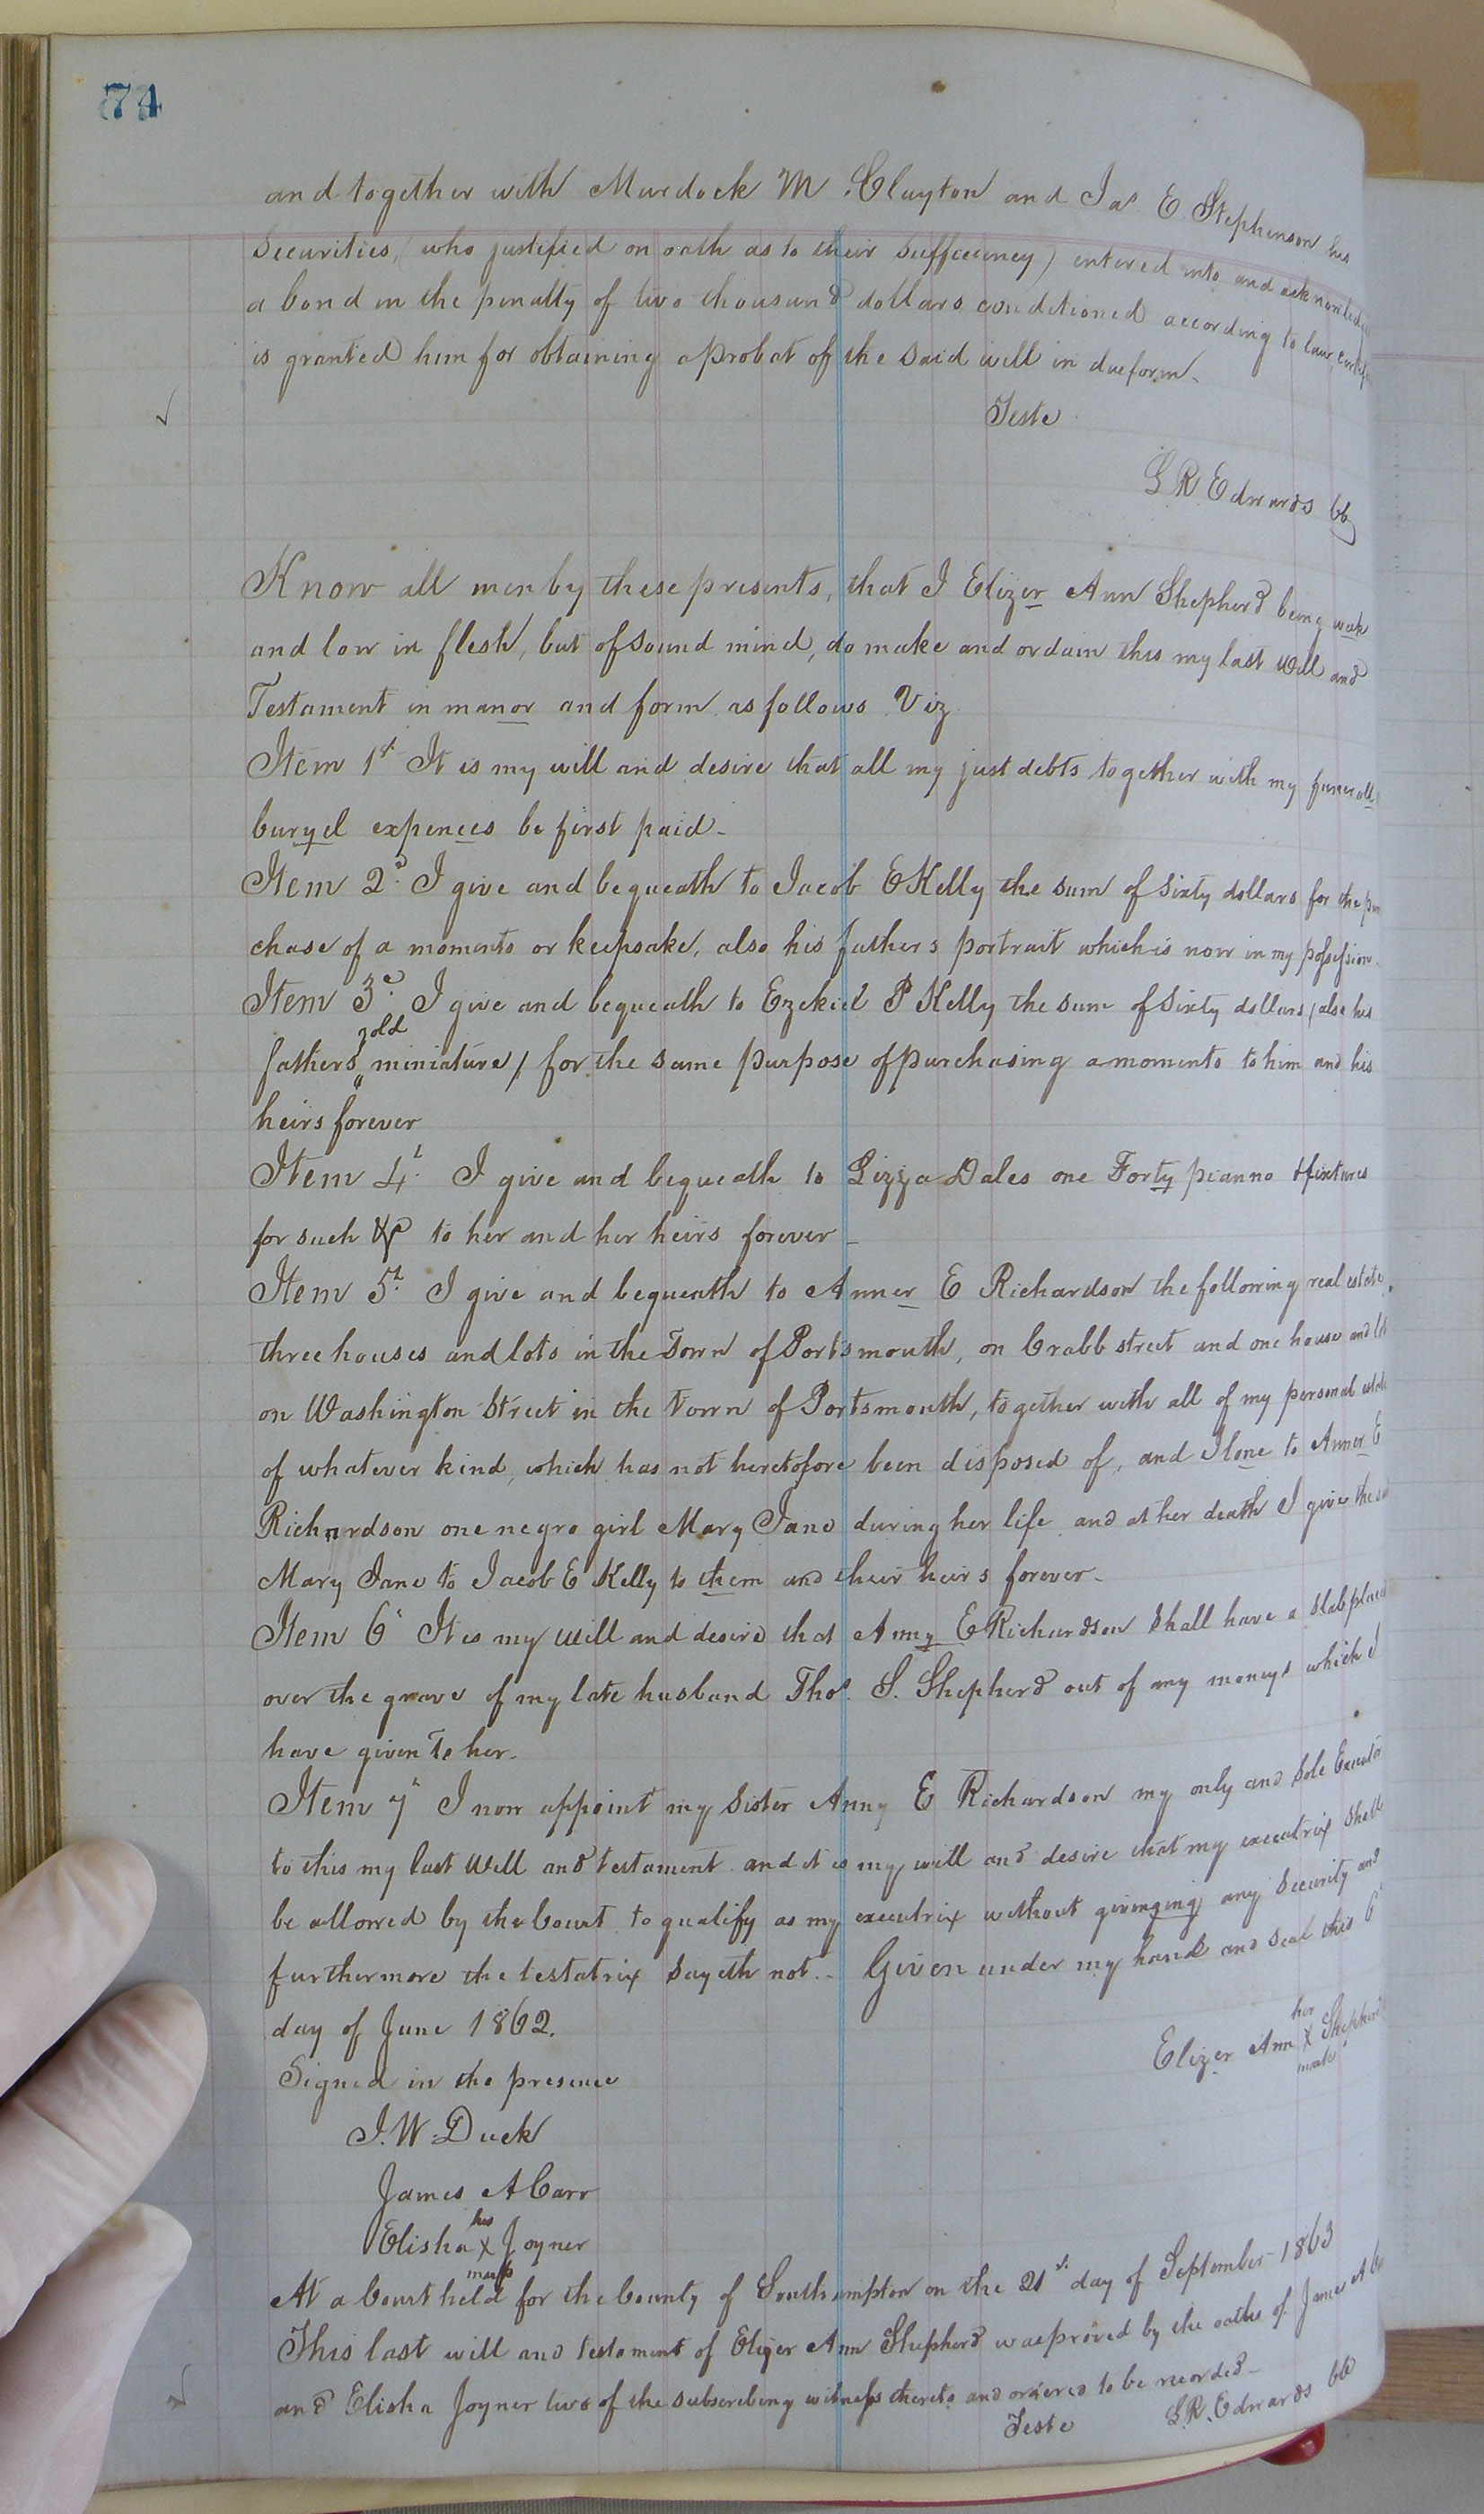 74
and together with Murdock M. Clayton and Jas E Stephenson his
Securities, (who justified on oath as to their sufficiency) entered into and acknowledged
a bond in the penalty of two thousand dollars conditioned according to law,
is granted him for obtaining a probat of the said will in due form.
Teste
L R Edwards CC
Know all men by these presents, that I Elizer Ann Shepherd being weak
and low in flesh, but of sound mind, do make and ordain this my last Will and
Testament in manor and form as follows Viz
Item 1st It is my will and desire that all my just debts together with my funerall
buryel expences be first paid.
Item 2d. I give and bequeath to Jacob E Kelly the sum of Sixty dollars for the pur
chase of a momento or keepsake, also his father s portrait which is now in my possession.
Item 3d. I give and bequeath to Ezekiel P Kelly the sum of Sixty dollars (also his
fathers gold miniature) for the same purpose of purchasing a momento to him and his
heirs forever
Item 4t. I give and bequeath to Lizza Dales one Forty pianno + fixtures
for such &c to her and her heirs forever
Item 5t. I give and bequeath to Anner E Richardson the following real estate,
three houses and lots in the Town of Portsmouth, on Crabb street and one house and lot
on Washington Street in the Town of Portsmouth, together with all of my personal estate
of whatever kind, which has not heretofore been disposed of, and I lone to Anner E
Richardson one negro girl Mary Jane during her life and at her death I give the
Mary Jane to Jacob E Kelly to them and their heirs forever.
Item 6t It is my will and desire that Anny E Richardson Shall have a Slab placed
over the grave of my late husband Thos. S. Shepherd out of any moneys which I
have given to her.
Item 7t I now appoint my Sister Anny E Richardson my only and Sole Executor
to this my last Will and testament and it is my will and desire that my executrix shall
be allowed by the Court to qualify as my executrix without givinging any Security and
furthermore the testatrix Sayeth not. Given under my hand and Seal this 6
day of June 1862.
Elizer Ann her X mark Shepherd
Signed in the presence
J. W. Duck
James A Carr
Elisha his X mark Joyner
At a Court held for the County of Southampton on the 21st day of September 1863
This last will and testament of Elizer Ann Shepherd was proved by the oaths of James A
and Elisha Joyner two of the subscribing witness thereto and ordered to be recorded
Teste L.R. Edwards CC